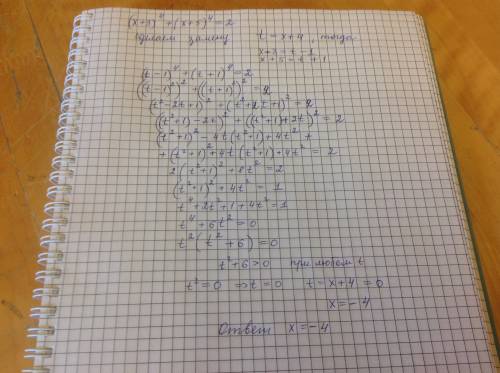 (x+3)⁴+(x+5)⁴=2
Делаем замену t=x+4, тогда
x+3=t-1
x+5=t+1
(t-1)⁴+(t+1)⁴=2
((t-1)²)²+((t+1)²)²=2
(t²-2t+1)²+(t²+2t+1)²=2
((t²+1)-2t)²+((t²+1)+2t)²=2
(t²+1)²-4t(t²+1)+4t²+
+(t²+1)²+4t(t²+1)+4t²=2
2(t²+1)²+8t²=2
(t²+1)²+4t²=1
t⁴+2t²+1+4t²=1
t⁴+6t²=0
t²(t²+6)=0
t²+6>0 при любом t
t²=0 ⇒t=0 t=x+4=0
x=-4
Ответ x=-4